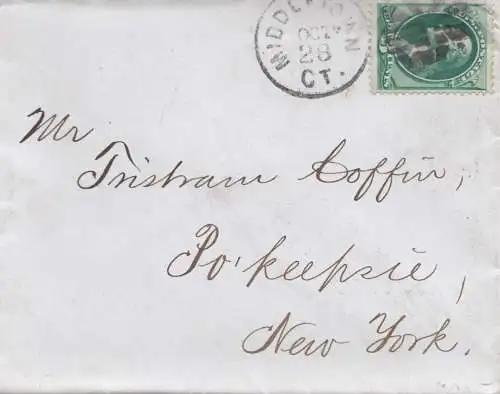 MIDDLETOWN
OCT
28
CT.
Mr
Tristram Coffin,
Po'keepsie,
New York.